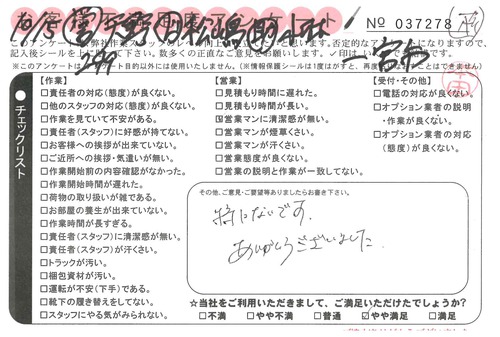 10/15
No 037278
このアンケートは弊社作業スタッフのレベル向上に
否定的なアンケートになりますので、
記入後シールを
数多くの正直なご意見
✓印は
※このアンケートは
アンケート目的以外には使用いたしません。(※情報保護シールは1度はがすと、再度
できません)
チェックリスト
【作業】
□責任者の対応(態度)が良くない。
□他のスタッフの対応(態度)が良くない。
□作業を見ていて不安がある。
□責任者(スタッフ)に好感が持てない。
□お客様への挨拶が出来ていない。
□ご近所への挨拶・気遣いが無い。
□作業開始前の内容確認がなかった。
□作業開始時間が遅れた。
□荷物の取り扱いが雑である。
□お部屋の養生が出来ていない。
□作業時間が長すぎる。
□責任者(スタッフ)に清潔感が無い。
□責任者(スタッフ)が汗くさい。
□トラックが汚い。
□梱包資材が汚い。
□運転が不安(下手)である。
□靴下の履き替えをしてない。
□スタッフにやる気がみられない。
【営業】
□見積もり時間に遅れた。
□見積もり時間が長い。
□営業マンに清潔感が無い。
□営業マンが煙草くさい。
□営業マンが汗くさい。
□営業態度が良くない。
□営業の説明と作業が一致してない。
【受付・その他】
□電話対応が良くない。
□オプション業者の説明
・作業が良くない。
□オプション業者の対応
(態度)が良くない。
その他、ご意見・ご要望等ありましたらお書き下さい。
特にないです。
ありがとうございました
☆当社をご利用いただきまして、ご満足いただけたでしょうか?
□不満 □やや不満 □普通 ☑やや満足 □満足